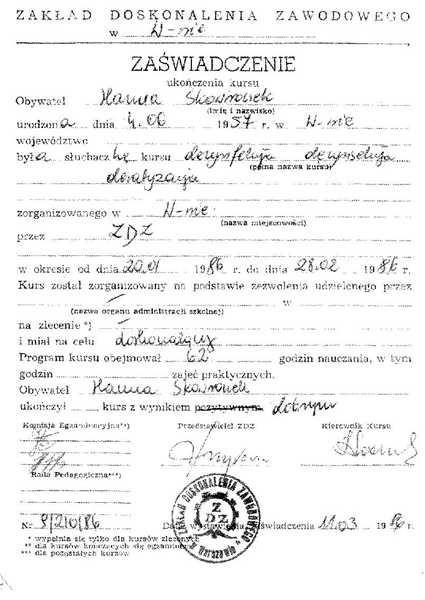 ZAKŁAD DOSKONALENIA ZAWODOWEGO
w W-wie
ZAŚWIADCZENIE
ukończenia kursu
Obywatel Hanna Skowronek
(imię i nazwisko)
urodzona dnia 4.06 1957 r. w W-wie
województwo
była słuchaczką kursu dezynfekcja dezynsekcja
(pełna nazwa kursu)
deratyzacja
zorganizowanego w W-wie
(nazwa miejscowości)
przez ZDZ
w okresie od dnia 20.01 1986 r. do dnia 28.02 1986 r.
Kurs został zorganizowany na podstawie zezwolenia udzielonego przez
w
(nazwa organu administracji szkolnej)
na zlecenie *)
i miał na celu doskonalący
Program kursu obejmował 62 godzin nauczania, w tym
godzin zajęć praktycznych.
Obywatel Hanna Skowronek
ukończył kurs z wynikiem pozytywnym dobrym
Komisja Egzaminacyjna**) Przedstawiciel ZDZ Kierownik Kursu
Rada Pedagogiczna***)
ZAKŁAD DOSKONALENIA ZAWODOWEGO
Z
DZ
Warszawie
Nr 9/210/86 Data wystawienia zaświadczenia 11.03 1986 r.
* wypełnia się tylko dla kursów zleconych
** dla kursów kończących się egzaminem
*** dla pozostałych kursów